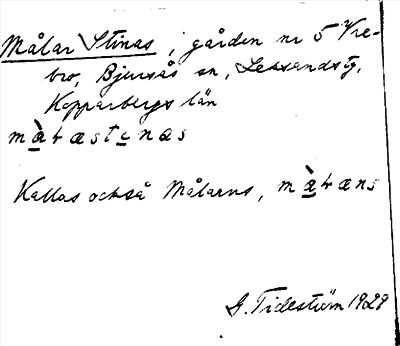 Målar Stinas, i gården nr 5 Vre-
bro, Bjursås sn, Leksands tg,
Kopparbergs län
màɬæstɩnas
Kallas också Målarns, màɬæns
G. Tideström 1929